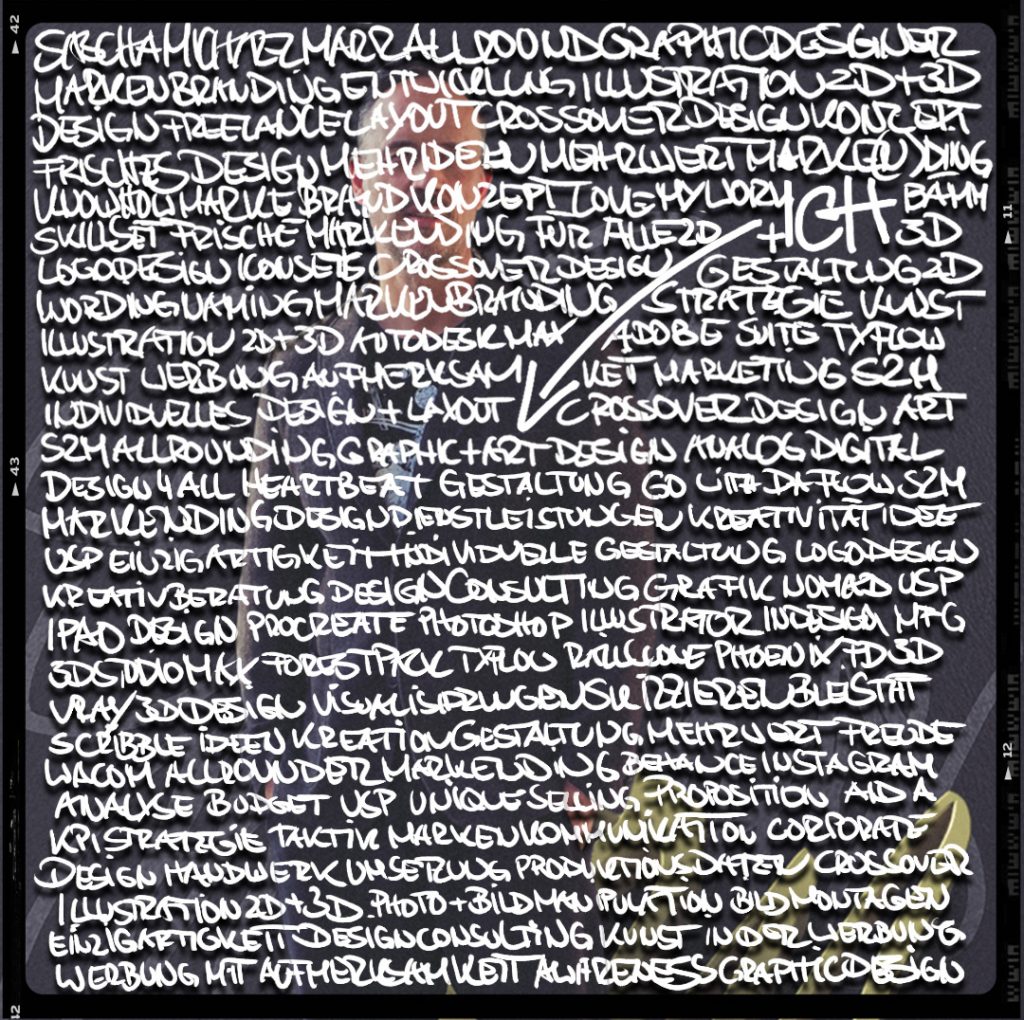 SASCHA MICHAEL MARR ALLROUNDGRAPHICDESIGNER
MARKENBRANDING ENTWICKLUNG ILLUSTRATION 2D+3D
DESIGN+FREELANCE LAYOUT CROSSOVERDESIGN KONZEPT
FRISCHES DESIGN MEHR IDEEN MEHRWERT MARKE(N)DING
KNOWHOW MARKE BRAND KONZEPT I LOVE MY WORK BÄMM
SKILLSET FRISCHE MARKENDING FÜR ALLE 2D + ICH 3D
LOGODESIGN ICONSETS CROSSOVERDESIGN GESTALTUNG 2D
WORDING NAMING MARKENBRANDING STRATEGIE KUNST
ILLUSTRATION 2D+3D AUTODESK MAX ADOBE SUITE TYFLOW
KUNST WERBUNG AUFMERKSAM KEIT MARKETING S2M
INDIVIDUELLES DESIGN+LAYOUT CROSSOVERDESIGN ART
S2M ALLROUNDING GRAPHIC+ART DESIGN ANALOG DIGITAL
DESIGN 4 ALL HEARTBEAT GESTALTUNG GO WITH DA FLOW S2M
MARKENDING DESIGNDIENSTLEISTUNGEN KREATIVITÄT IDEE
USP EINZIGARTIGKEIT+INDIVIDUELLE GESTALTUNG LOGODESIGN
KREATIVBERATUNG DESIGNCONSULTING GRAFIK NOMAD USP
IPAD DESIGN PROCREATE PHOTOSHOP ILLUSTRATOR INDESIGN
3DSTUDIOMAX FORESTPACK TYFLOW RAILCLONE PHOENIX FD 3D
VRAY 3DDESIGN VISUALISIERUNGEN SKIZZIEREN BLEISTIFT
SCRIBBLE IDEEN KREATION GESTALTUNG MEHRWERT FREUDE
WACOM ALLROUNDER MARKENDING BEHANCE INSTAGRAM
ANALYSE BUDGET USP UNIQUE SELLING PROPOSITION AIDA
KPI STRATEGIE TAKTIK MARKENKOMMUNIKATION CORPORATE
DESIGN HANDWERK UMSETZUNG PRODUKTIONSDATEN CROSSOVER
ILLUSTRATION 2D+3D PHOTO+BILDMANIPULATION BILDMONTAGEN
EINZIGARTIGKEIT DESIGNCONSULTING KUNST IN DER WERBUNG.
WERBUNG MIT AUFMERKSAMKEIT AWARENESS GRAPHICDESIGN
42
43
42
11
12